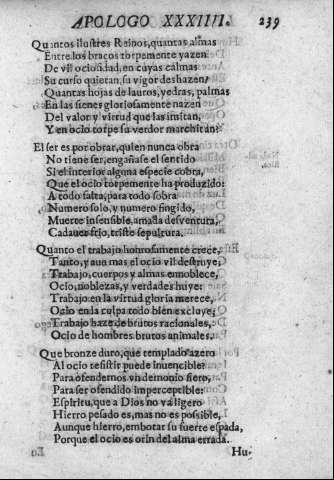 APOLOGO XXXIIII. 239
Quantos ilustres Reinos, quantas almas
Entre los braços torpemente yazen
De vil ociosidad, en cuyas calmas
Su curso quietan, su vigor deshazen!
Quantas hojas de lauros, yedras, palmas
En las sienes gloriosamente nazen
Del valor y virtud que las imitan,
Y en ocio torpe su verdor marchitan!
El ser es por obrar, quien nunca obra
No tiene ser, engañase el sentido
Si el interior alguna especie cobra,
Que el ocio torpemente ha produzido:
A todo falta, para todo sobra
Numero solo, y numero fingido,
Muerte insensible, amada desventura,
Cadauer frio, triste sepultura.
Quanto el trabajo honrosamente crece,
Tanto, y aun mas el ocio vil destruye,
Trabajo, cuerpos y almas ennoblece,
Ocio, noblezas, y verdades huye:
Trabajo en la virtud gloria merece,
Ocio en la culpa todo bien excluye,
Trabajo haze de brutos racionales,
Ocio de hombres brutos animales.
Que bronze duro, que templado azero
Al ocio resistir puede inuencible?
Para ofendernos vn demonio fiero,
Para ser ofendido impercetible:
Espiritu, que a Dios no va ligero
Hierro pesado es, mas no es possible,
Aunque hierro, embotar su fuerte espada,
Porque el ocio es orin del alma errada.
Hu-